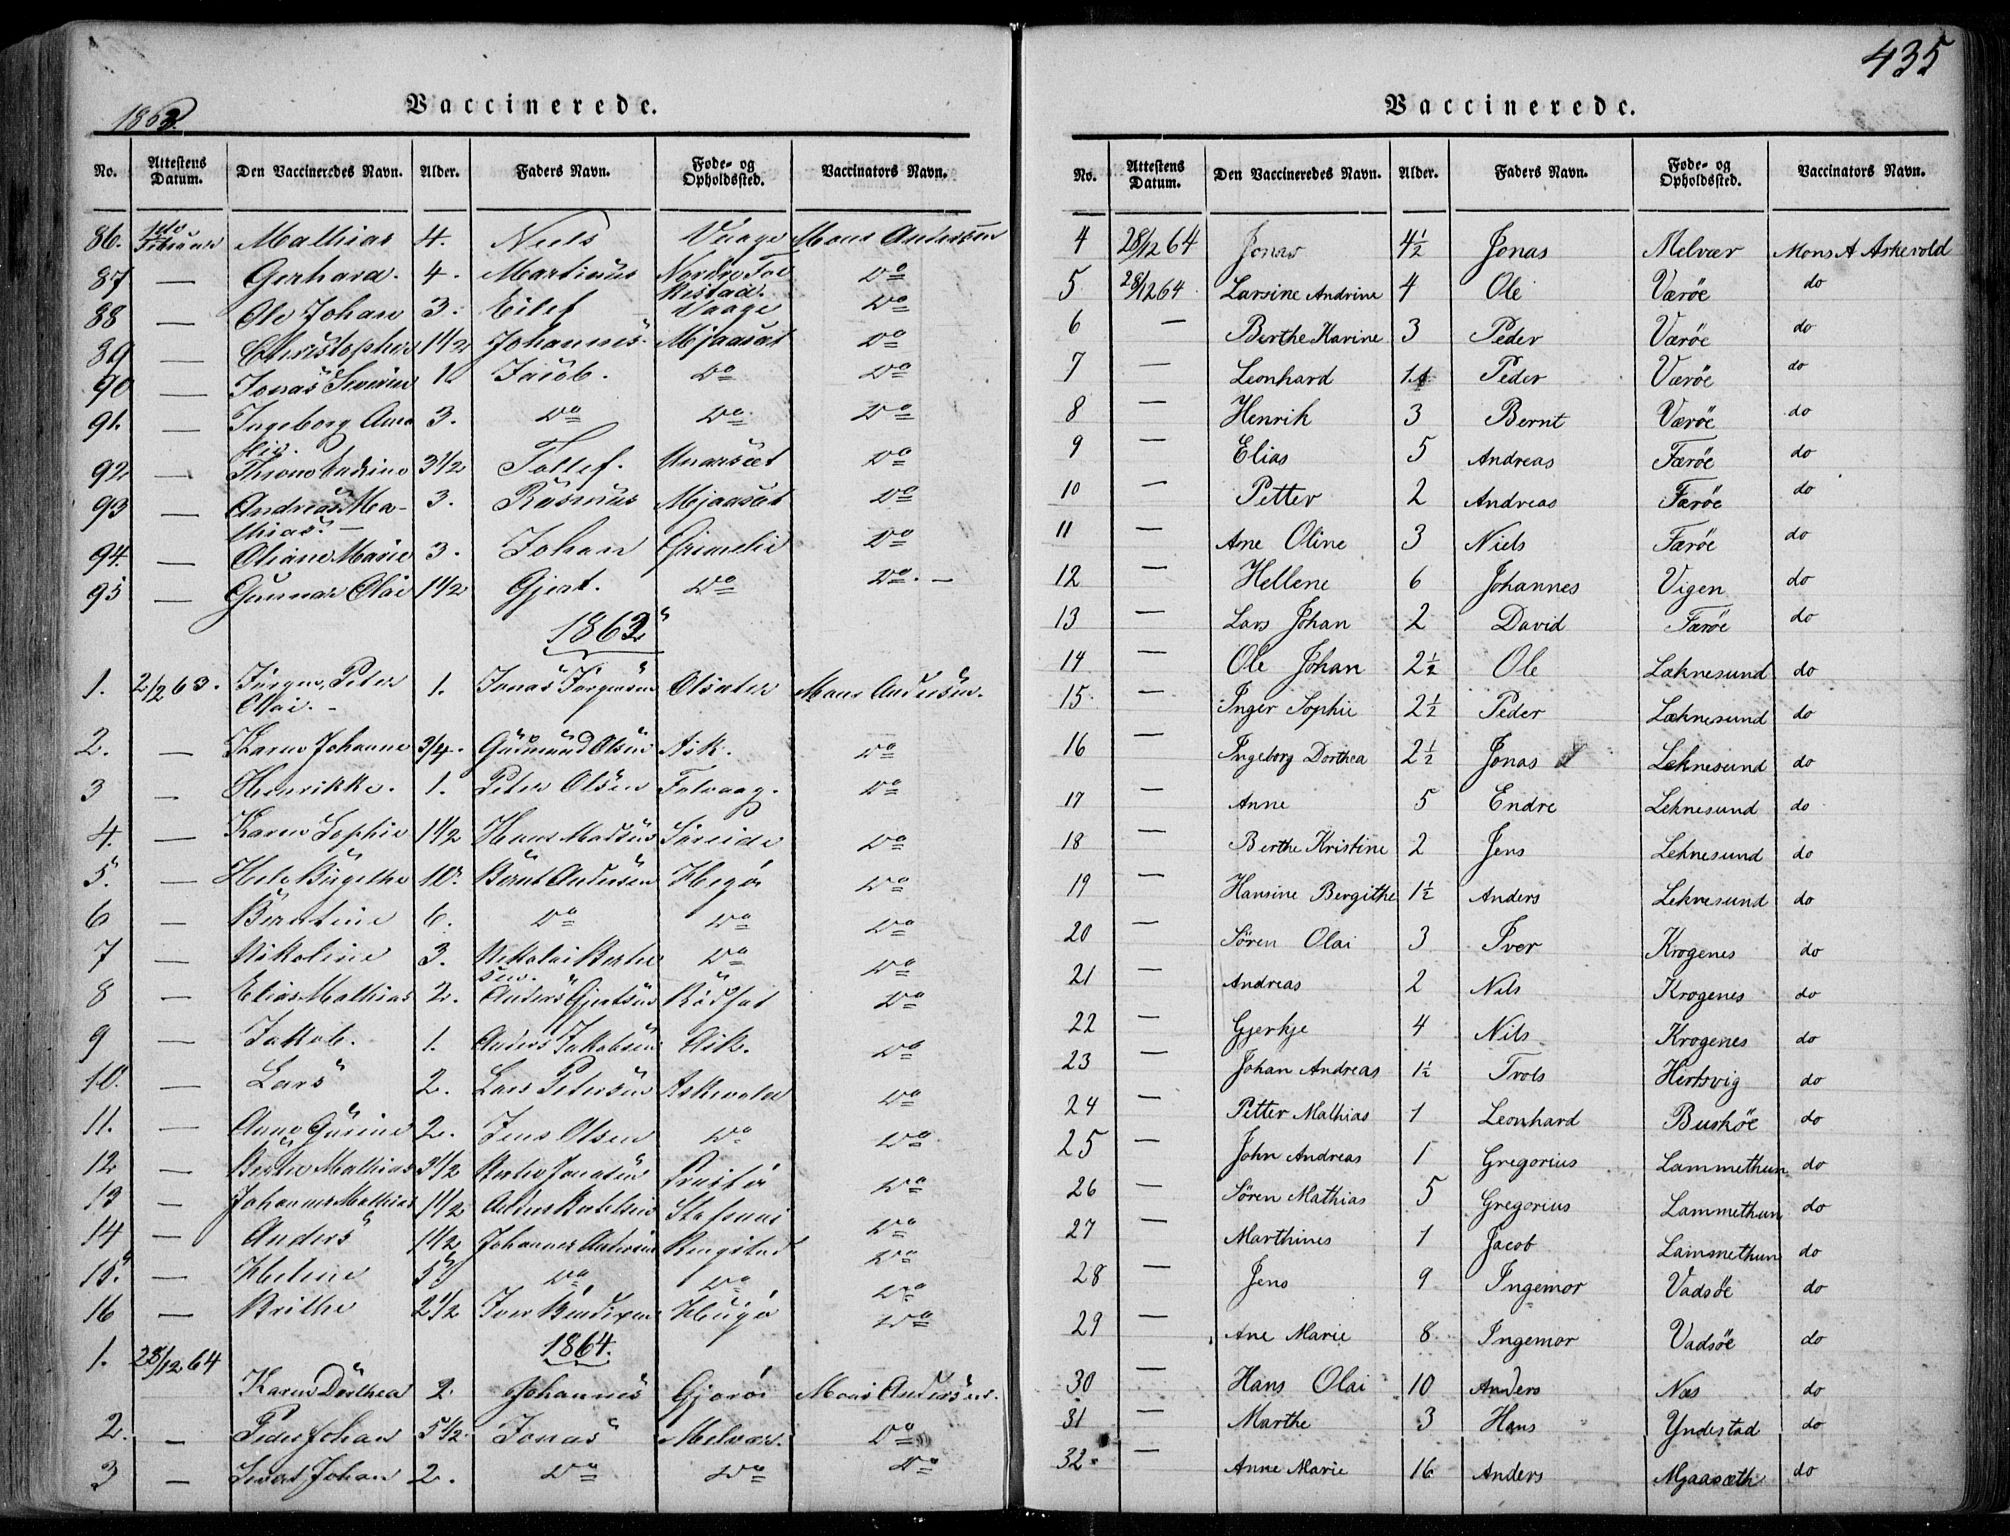 435
1863
Vaccinerede.
No. Attestens Datum. Den Vaccineredes Navn. Alder. Faders Navn. Føde- og Opholdssted. Vaccinators Navn.
86. Mathias 4. Niels Vaage Mons Andersen
87 — Gerhard. 4. Martinus Nordre
88 — Ole Johan 3. Eilef Vaage Do
89 — Christopher 1 1/2 Johannes Mjaasæt Do
90 — Jonas Severin 1. Jacob. Do Do
91. — Ingeborg Ama
lie. 3. Do Do Do
92 — Cathrine 3 1/2 Tollef. Do
93 — Andreas Ma-
thias. — 3. Rasmus Mjaasæt Do
94. — Oliane Marie 3. Johan Grimelie Do
95 — Gunnar Olai 1 1/2 Gjert. Do Do. —
1863
1. 2/12 63. Jørgen Peter
Olai. — 1. Jonas Jørgensen Olsæter Mons Andersen.
2. — Karen Johanne 3/4. Gudmund Olsen Ask. Do
3 — Henrikke. 1. Peter Olsen Do
4. — Karen Sophie 1 1/2 Hans Madsen Søreide Do
5. — Bergithe 10. Bernt Andersen Do
6 — Berntine 6. Do Do Do
7 — Nikoline 3. Nikolai Do Do
8 — Elias Mathias 2. Anders Gjertsen Do
9 — Jakob. 1. Anders Jakobsen Ask. Do
10. — Lars 2. Lars Petersen Askevold Do
11. — Anne Gurine 2. Jens Olsen Do Do
12 — Mathias 3 1/2 Do
13 — Johannes Mathias 1 1/2 Anders Stafsnes Do
14 — Anders 1 1/2 Johannes Andersen Ringstad Do
15. — Helene 5 Do Do Do
16 — Brithe 2 1/2 Iver Bendixen Do
1864.
1. 28/12 64 Karen Dorthea 2. Johannes Gjørøe Mons Andersen.
2. — Peder Johan 5 1/2. Jonas Melvær. Do
3 — Johan 2. Do Do Do
Vaccinerede.
No. Attestens Datum. Den Vaccineredes Navn. Alder. Faders Navn. Føde- og Opholdssted. Vaccinators Navn.
4 28/12 64 Jonas 4 1/2 Jonas Melvær Mons A Askevold
5 28/12 64 Larsine Andrine 4 Ole Værøe do
6 — Berthe Karine 3 Peder Værøe do
7 — Leonhard 1 Peder Værøe do
8 — Henrik 3 Bernt Værøe do
9 — Elias 5 Andreas Færøe do
10 — Petter 2 Andreas Færøe do
11 — Ane Oline 3 Niels Færøe do
12 — Hellene 6 Johannes Vigen do
13 — Lars Johan 2 David Færøe do
14 — Ole Johan 2 1/2 Ole Læknesund do
15. — Inger Sophie 2 1/2 Peder Læknesund do
16 — Ingeborg Dorthea 2 1/2 Jonas Leknesund do
17 — Anne 5 Endre Leknesund do
18 — Berthe Kristine 2 Jens Leknesund do
19 — Hansine Bergithe 1 1/2 Anders Leknesund do
20 — Søren Olai 3 Iver Krogenes do
21 — Andreas 2 Nils Krogenes do
22 — Gjerkje 4 Nils Krogenes do
23 — Johan Andreas 1 1/2 Trols Hertsvig do
24 — Petter Mathias 1 Leonhard Buskøe do
25 — John Andreas 1 Gregorius Lammethun do
26 — Søren Mathias 5 Gregorius Lammethun do
27 — Marthines 1 Jacob Lammethun do
28 — Jens 9 Ingemor Vadsøe do
29 — Ane Marie 8 Ingemor Vadsøe do
30 — Hans Olai 10 Anders Næs do
31 — Marthe 3 Hans Yndestad do
32. — Anne Marie 16 Anders Mjaasæth do